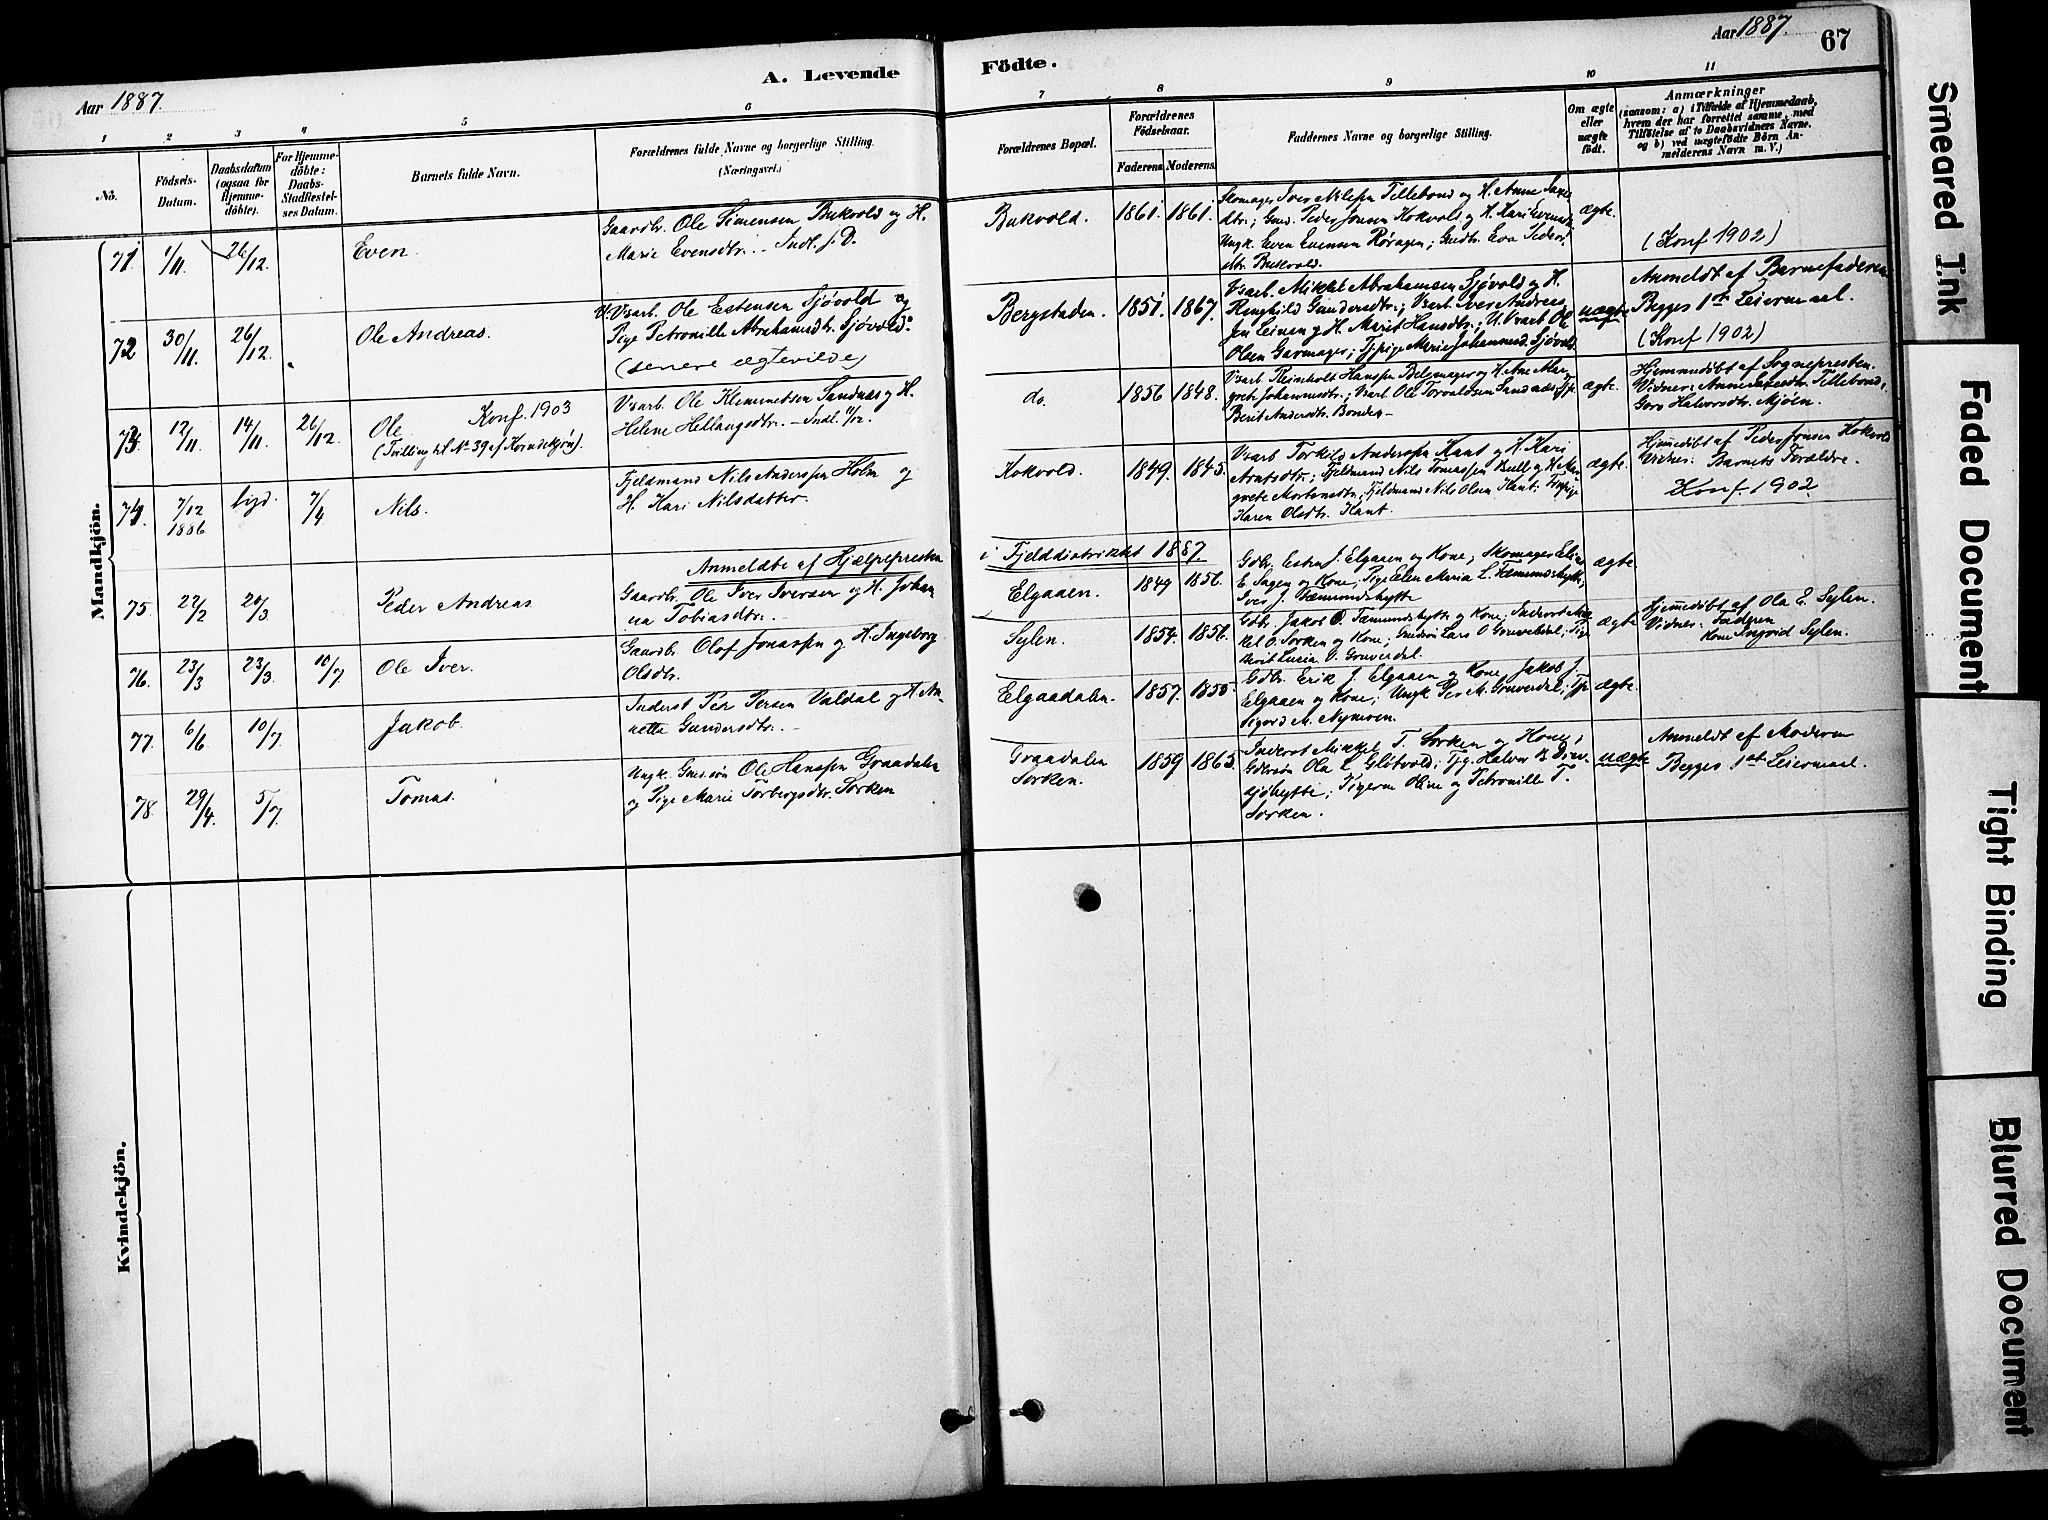 Aar 1887.
A. Levende
Födte.
Aar 1887.
67
1
2
3
4
5
6
7
8
9
10
11
No.
Födsels-
Datum.
Daabsdatum
(ogsaa for
Hjemme-
döbte).
For Hjemme-
döbte:
Daabs-
Stadfæstel-
ses Datum.
Barnets fulde Navn.
Forældrenes fulde Navne og borgerlige Stilling.
(Næringsvei.)
Forældrenes Bopæl.
Forældrenes
Födselsaar.
Faderens.
Moderens.
Faddernes Navne og borgerlige Stilling.
Om ægte
eller
uægte
födt.
Anmærkninger
(saasom: a) i Tilfælde af Hjemmedaab,
hvem der har forrettet samme, med
Tilföielse af to Daabsvidners Navne,
og b) ved uægtefödte Börn An-
melderens Navn m. V.)
Mandkjön.
71
1/11
26/12
Even
Gaardbr. Ole Simensen Bukvold og H.
Marie Evensdtr. - Indl. s. D.
Bukvold.
1861
1861
Skomager Iver Nilssen Tillebond og H. Anne
dtr; Gmd. Peder Jonsen Kokvold og H. Kari Evensd
Ungk. Even Evensen Røragen; Gmdtr. Eva Peders
dtr. Bukvold.
ægte.
(Konf 1902)
72
30/11.
26/12.
Ole Andreas.
U. Vsarb. Ole Estensen Sjøvold og
Pige Petronille Abrahamsdtr. Sjøvold.
(senere ægteviede)
Bergstaden.
1851
1867.
Vsarb. Mikkel Abrahamsen Sjøvold og H.
Ringhild Gundersdtr.; Vsarb. Iver Andreas
Jen Leinan og H. Marit Hansdtr.; U. Vsarb Ole
Olsen Garmager; Tjpige Marie Johannesd. Sjøvold
uægte
Anmeldt af Barnefaderen
Begges 1ste Leiermaal.
(Konf 1902)
73
12/11.
14/11.
26/12.
Ole
Konf. 1903
(Tvilling til No 39 af Kvindekjøn).
Vsarb. Ole Klemmetsen Sandnæs og H.
Helene Hellangsdtr. - Indl. 11/12.
do.
1856
1848.
Vsarb. Reinholt Hanssen Belgmager og H. Ane Mar
grete Johannesdtr.; Vsarb. Ole Torvaldsen Sandnæs; Tjp
Berit Andersdtr. Bonden -
ægte.
Hjemmedöbt af Sognepresten.
Vidner: Anne dtr. Tillebond,
Goro Halvorsdtr. Mjøen.
74.
7/12
1886
lysd.
7/4
Nils.
Fjeldmand Nils Anderssen Holm og
H. Kari Nilsdatter
Kokvold.
1849.
1845.
Vsarb Torkild Anderssen Kant og H. Kari
Arntsdtr.; Fjeldmand Nils Tomassen Bull og H. Mar
grete Mortensdtr; Fjeldmand Nils Olsen Kant; Tjpige
Karen Olsdtr. Kant.
ægte.
Hjemmedöbt af Peder Jonsen Kokvold
Vidner: Barnets Forældre.
Konf. 1902
Anmeldte af Hjælpepresten
i Fjelddistriktet 1887
75.
22/2
20/3
Peder Andreas
Gaardbr. Ole Iver Iversen og H. Johan
na Tobiasdtr. -
Elgaaen.
1849
1856.
Gdbr. Esten J. Elgaaen og Kone; Skomager Elias
E Sagen og Kone; Pige Elen Maria L. Fæmundshytte,
Iver J. Fæmundshytte
ægte.
76.
23/3
23/3.
10/7
Ole Iver.
Gaardbr Olof Jonassen og H. Ingeborg
Olsdtr.
Sylen.
1854.
1856.
Gdbr. Jakob O. Fæmundshytte og Kone; Inderst Mik
kel O. Sorken og Kone; Gmdsön Lars O Gruverdal; Pige
Berit Lucia O. Gruverdal.
ægte
Hjemmedöbt af Ola E. Sylen.
Vidner: Indgren
Kone Ingrid Sylen.
77.
6/6
10/7.
Jakob.
Inderst Per Persen Valdal og H. An-
nette Gundersdtr. -
Elgaadalen.
1857.
1855.
Gdbr. Erik J. Elgaaen og Kone, Jakob J.
Elgaaen og Kone; Ungk Per M. Gruverdal; Tjp
Sigrid M. Nymoen.
ægte.
78.
29/4.
5/7.
Tomas.
Ungk. Gmdssön Ole Hanssen Graadalen
og Pige Marie Torbergsdtr. Sorken
Graadalen
Sorken.
1859
1865.
Inderst Mikkel T. Sorken og Kone;
Gdbrsön Ola L. Gløtvold; Tjg. Halvor B Drev-
sjøhytte; Pigerne Oline og Petronille T.
Sorken.
uægte
Anmeldt af Moderen
Begges 1ste Leiermaal.
Kvindekjön.
Smeared Ink
Faded Document
Tight Binding
Blurred Document